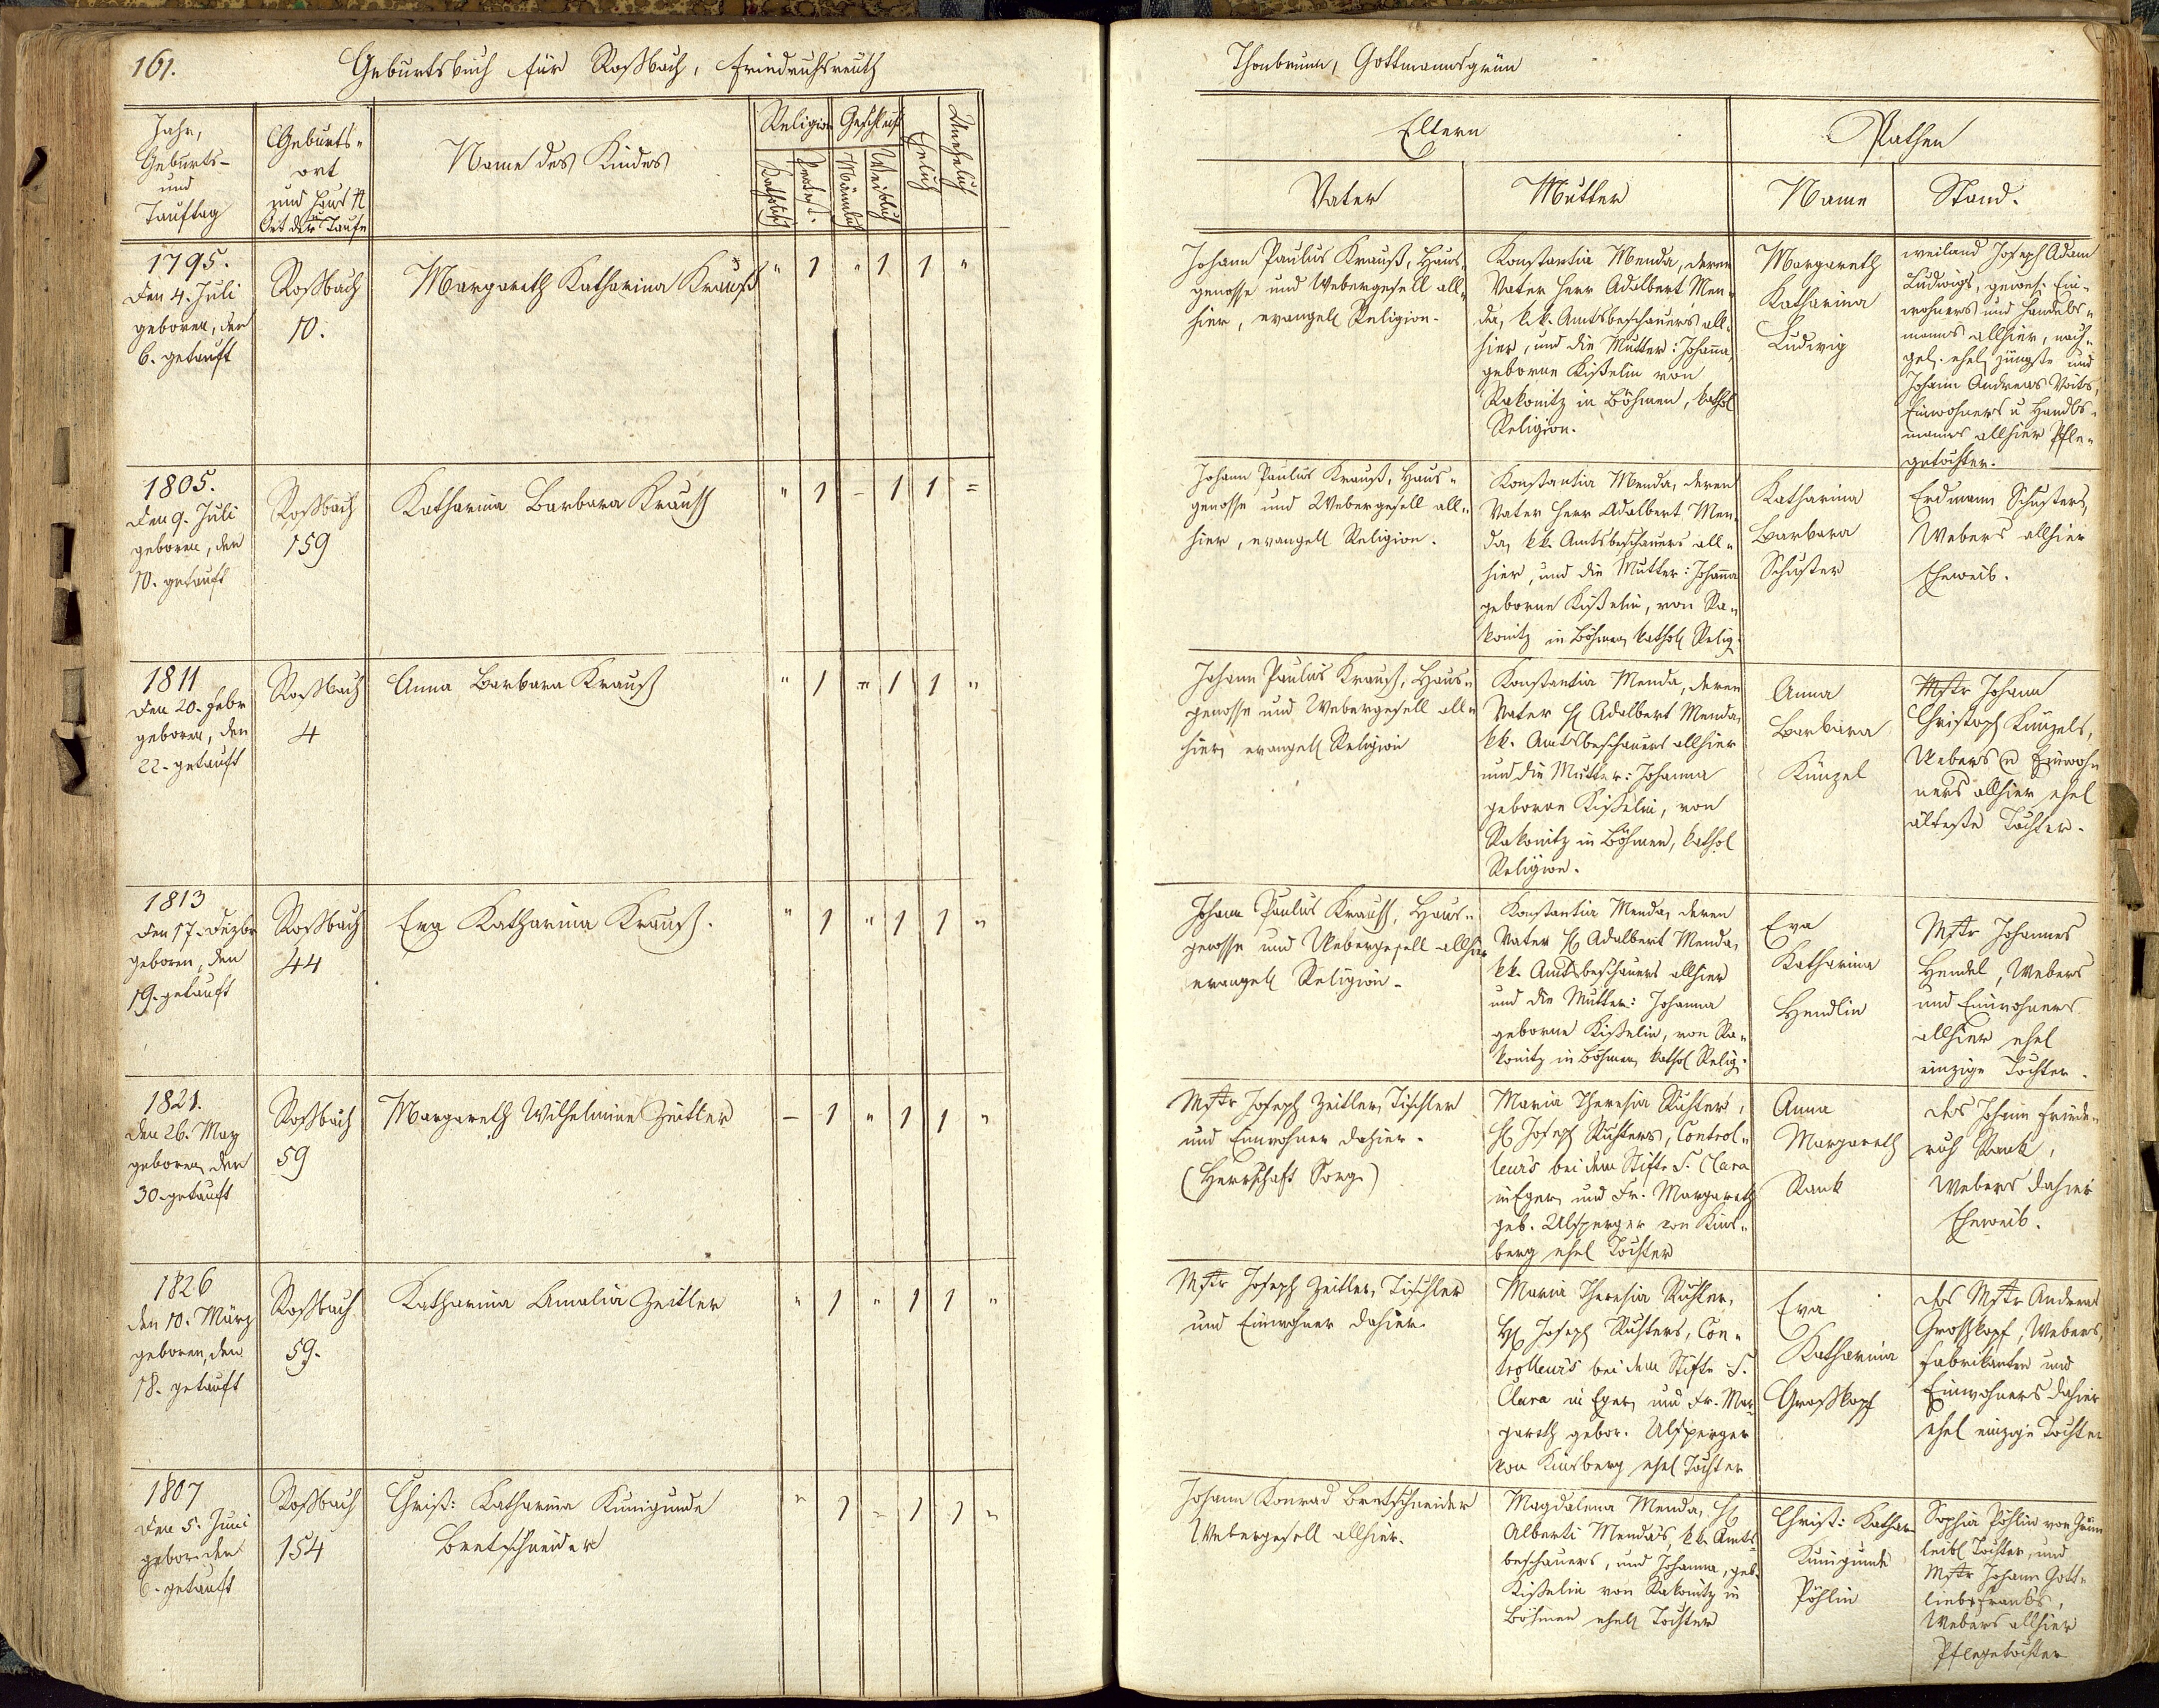 161.
Geburtsbuch für Roßbach, Friedrichsreuth
Thonbrunn, Gottmannsgrün
Jahr,
Geburts-
und
Tauftag
Geburts-
ort
und Haus N
Ort der Taufe
Name des Kindes
Religion
Katholisch
Protest.
Geschlecht
Männlich
Weiblich
Ehelich
Unehelich
Eltern
Vater
Mutter
Pathen
Name
Stand.
1795.
den 4. Juli
geboren, den
6. getauft
Roßbach
10.
Margareth Katharina Krauß
" 1 " 1 1 "
Johann Paulus Krauß, Haus-
genosse und Webergesell all-
hier, evangel Religion.
Konstantia Menda, deren
Vater Herr Adalbert Men-
da, k.k. Amtsbeschauers all-
hier, und die Mutter: Johanna,
geborne Kißelin von
Rakonitz in Böhmen, kathol
Religion.
Margareth
Katharina
Ludwig
weiland Joseph Adam
Ludwigs, gewes. Ein-
wohners und Handels-
manns allhier, nach-
gel. ehel jüngste und
Johann Andreas Voits,
Einwohners u Handls-
manns allhier Pfle-
getochter.
1805.
den 9. Juli
geboren, den
10. getauft
Roßbach
159
Katharina Barbara Krauß
" 1 - 1 1 =
Johann Paulus Krauß, Haus-
genosse und Webergesell all-
hier, evangel Religion.
Konstantia Menda, deren
Vater Herr Adalbert Men-
da, kk. Amtsbeschauers all-
hier, und die Mutter: Johanna
geborne Kißelin, von Ra-
konitz in Böhmen kathol Relig.
Katharina
Barbara
Schuster
Erdmann Schusters,
Webers allhier
Eheweib.
1811
den 20. Febr
geboren, den
22. getauft
Roßbach
4
Anna Barbara Krauß
" 1 " 1 1 "
Johann Paulus Krauß, Haus-
genosse und Webergesell all-
hier, evangel Religion
Konstantia Menda, deren
Vater H Adalbert Menda,
kk. Amtsbeschauers allhier
und die Mutter: Johanna
geborne Kißelin, von
Rakonitz in Böhmen, kathol
Religion.
Anna
Barbara
Künzel
Mstr Johann
Christoph Künzels,
Webers u Einwoh-
ners allhier ehel
älteste Tochter.
1813
den 17. Dezbr
geboren, den
19. getauft
Roßbach
44
Eva Katharina Krauß.
" 1 " 1 1 "
Johann Paulus Krauß, Haus-
genosse und Webergesell allhier
evangel Religion.
Konstantia Menda, deren
Vater H Adalbert Menda,
kk. Amtsbeschauers allhier
und die Mutter: Johanna
geborne Kißelin, von Ra-
konitz in Böhmen kathol Relig.
Eva
Katharina
Hendlin
Mstr Johannes
Hendel, Webers
und Einwohners
allhier ehel
einzige Tochter.
1821.
den 26. May
geboren, den
30. getauft
Roßbach
59
Margareth Wilhelmine Zeitler
- 1 " 1 1 "
Mstr Joseph Zeitler, Tischler
und Einwohner dahier.
(Herrschaft Sorg.)
Maria Theresia Richter,
H Joseph Richters, Control-
leurs bei dem Stifte S. Clara
in Eger, und Fr. Margareth
geb. Ulsperger von Kins-
berg ehel Tochter
Anna
Margareth
Rank
des Johann Friede-
rich Rank,
Webers dahier
Eheweib.
1826
den 10. März
geboren, den
18. getauft
Roßbach
59.
Katharina Amalia Zeitler
" 1 " 1 1 "
Mstr Joseph Zeitler, Tischler
und Einwohner dahier.
Maria Theresia Richter,
H Joseph Richters, Con-
trolleurs bei dem Stifte S.
Clara in Eger, und Fr. Mar-
gareth gebor. Ulsperger
von Kinsberg ehel Tochter
Eva
Katharina
Großkopf
des Mstr Andreas
Großkopf, Webers,
Fabrikanten und
Einwohners dahier
ehel einzige Tochter
1807
den 5. Juni
gebor. den
6. getauft
Roßbach
154
Christ: Katharina Kunigunde
Bretschneider
" 1 " 1 1 "
Johann Konrad Bretschneider
Webergesell allhier.
Magdalena Menda, H
Alberti Menda's, kk. Amts-
beschauers, und Johanna, geb.
Kißelin von Rakonitz in
Böhmen ehel Tochter
Christ: Kathar
Kunigunde
Pöhlin
Sophia Pöhlin von Grün
leibl Tochter, und
Mstr Johann Gott-
lieb Franks,
Webers allhier
Pflegetochter